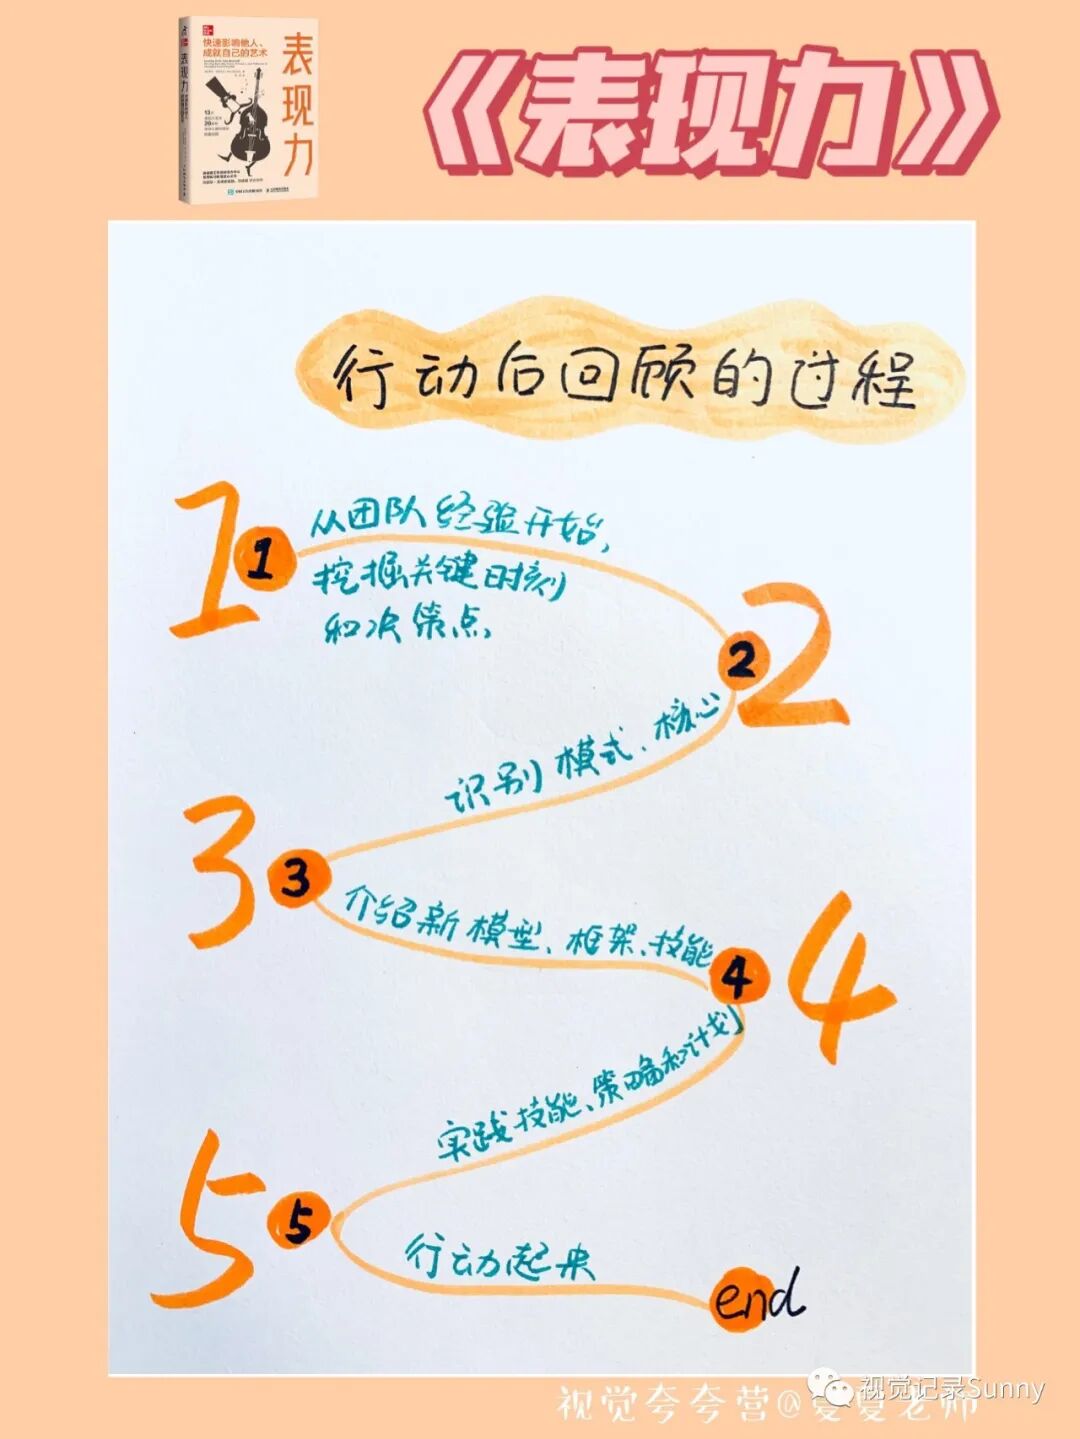 快速影响他人、
成就自己的艺术
表现力
表现力
《表现力》
行动后回顾的过程
1
1
从团队经验开始，
挖掘关键时刻
和决策点
2
2
识别模式、核心
3
3
介绍新模型、框架、技能
4
4
实践技能、策略和计划
5
5
行动起来
end
视觉记录Sunny
视觉夸夸营@夏夏老师